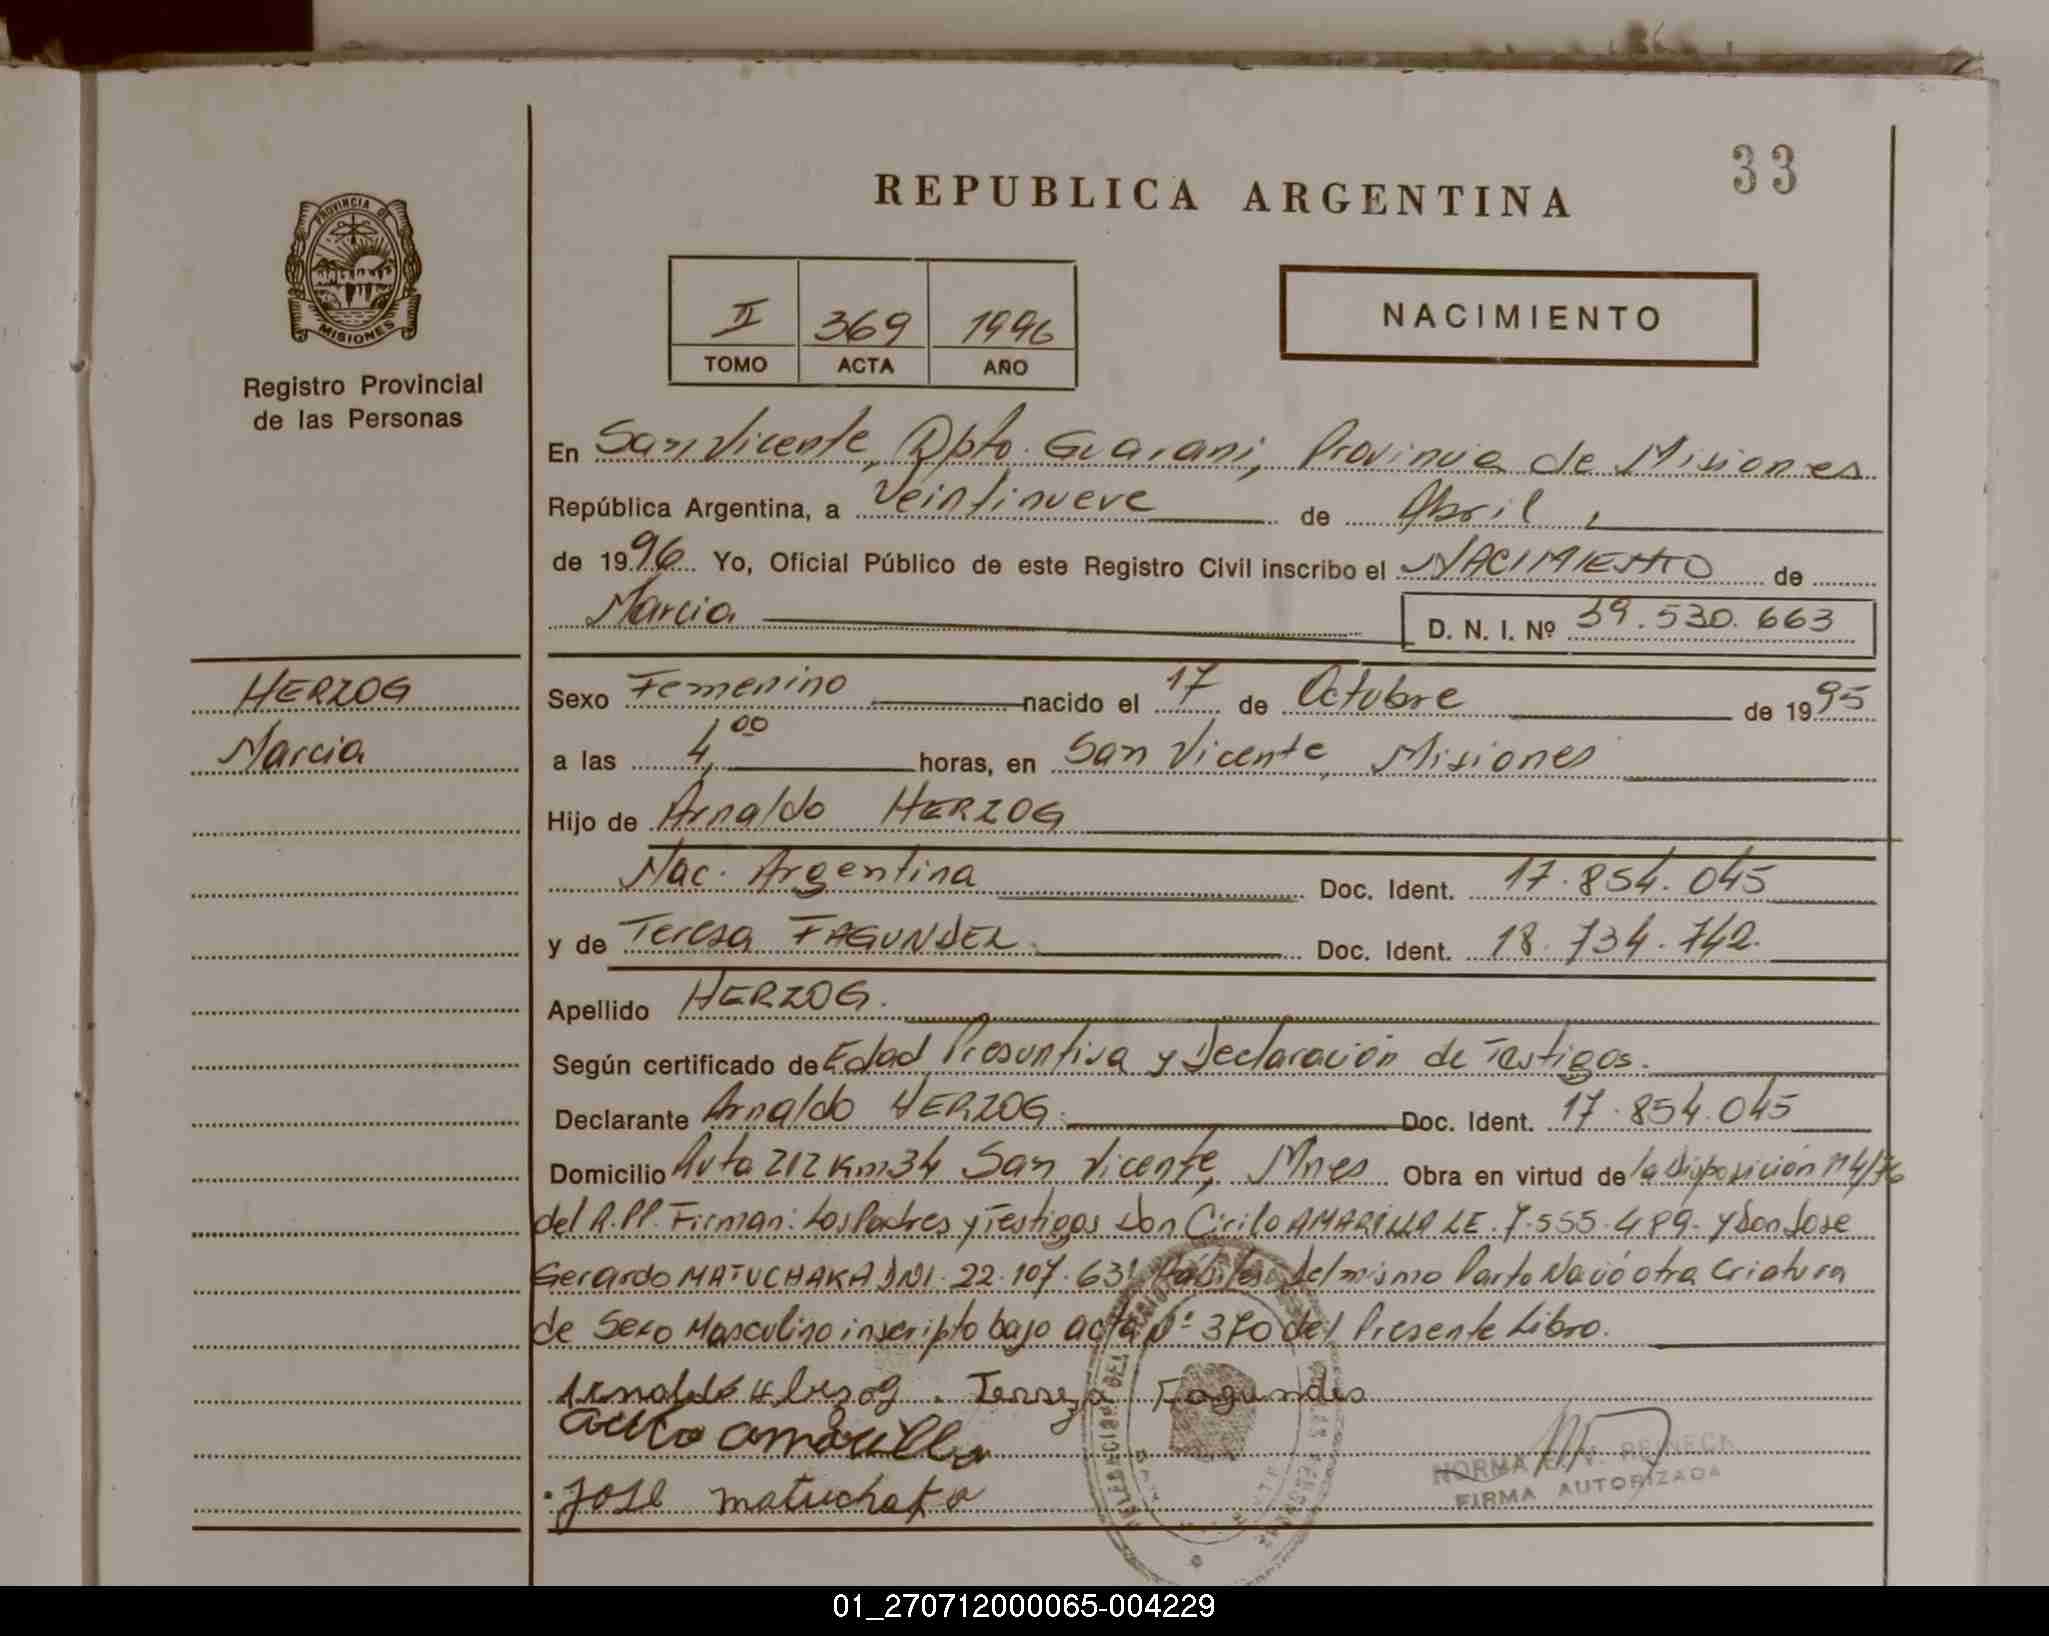 33
REPUBLICA ARGENTINA
PROVINCIA DE
MISIONES
Registro Provincial
de las Personas
II 369 1996
TOMO ACTA AÑO
NACIMIENTO
En San Vicente, Dpto. Guarani, Provincia de Misiones
República Argentina, a Veintinueve de Abril,
de 1996 Yo, Oficial Público de este Registro Civil inscribo el NACIMIENTO de
Marcia D. N. I. Nº 39.530.663
HERZOG
Marcia
Sexo Femenino nacido el 17 de Octubre de 1995
a las 4,00 horas, en San Vicente, Misiones
Hijo de Arnaldo HERZOG
Nac. Argentina Doc. Ident. 17.854.045
y de Teresa FAGUNDEZ Doc. Ident. 18.734.742.
Apellido HERZOG.
Según certificado de Edad Presuntiva y Declaración de Testigos.
Declarante Arnaldo HERZOG. Doc. Ident. 17.854.045
Domicilio Ruta 212 Km 34 San Vicente, Mnes Obra en virtud de la Disposición Nº 4/76
del R.PP. Firman: Los Padres y Testigos Don Cirilo AMARILLA LE. 7.555.489. y Don Jose
Gerardo MATUCHAKA DNI. 22.107.631 Hábiles. Del mismo Parto Nació otra Criatura
de Sexo Masculino inscripto bajo acta Nº 370 del Presente Libro.
Arnaldo Herzog. Tereza Fagundes
amarilla
Jose matuchaka
NORMA REINECK
FIRMA AUTORIZADA
01_270712000065-004229